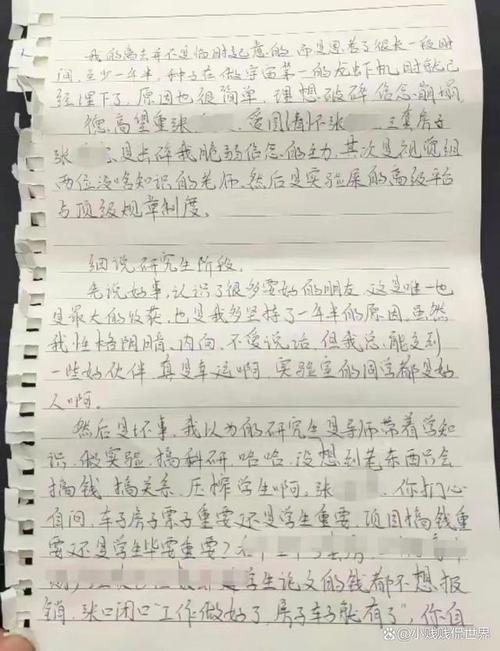 我的离去并不是临时起意的,而是思考了很长一段时
间,至少一年半,种子在做宇宙第一的龙出下机时就已
经埋下了,原因也很简单,理想破碎信念崩塌
德高望重张 爱国(清)怀张 三套房子
张 是击碎我脆弱信念的主力,其次是视觉组
两位没啥知识的老师,然后是实验屎的高级平台
与顶级规章制度。
细说研究生阶段。
先说好事,认识了很多要好的朋友,这是唯一也
是最大的收获,也是我多坚持了一年半的原因,虽然
我性格阴暗,内向,不爱说话,但我总能交到
一些好伙伴,真是幸运啊,实验室的同学都是好
人啊。
然后是坏事,我以为的研究生是导师带着学知
识,做实验,搞科研,哈哈,没想到老东西只会
搞钱,搞关系,压榨学生啊,张 ,你扪心
自问,车子房子票子重要还是学生重要,项目搞钱重
要还是学生毕业重要?
学生论文的钱都不想报
销,张口闭口“工作做好了,房子车子就有了”,你自
@小贱贱侃世界